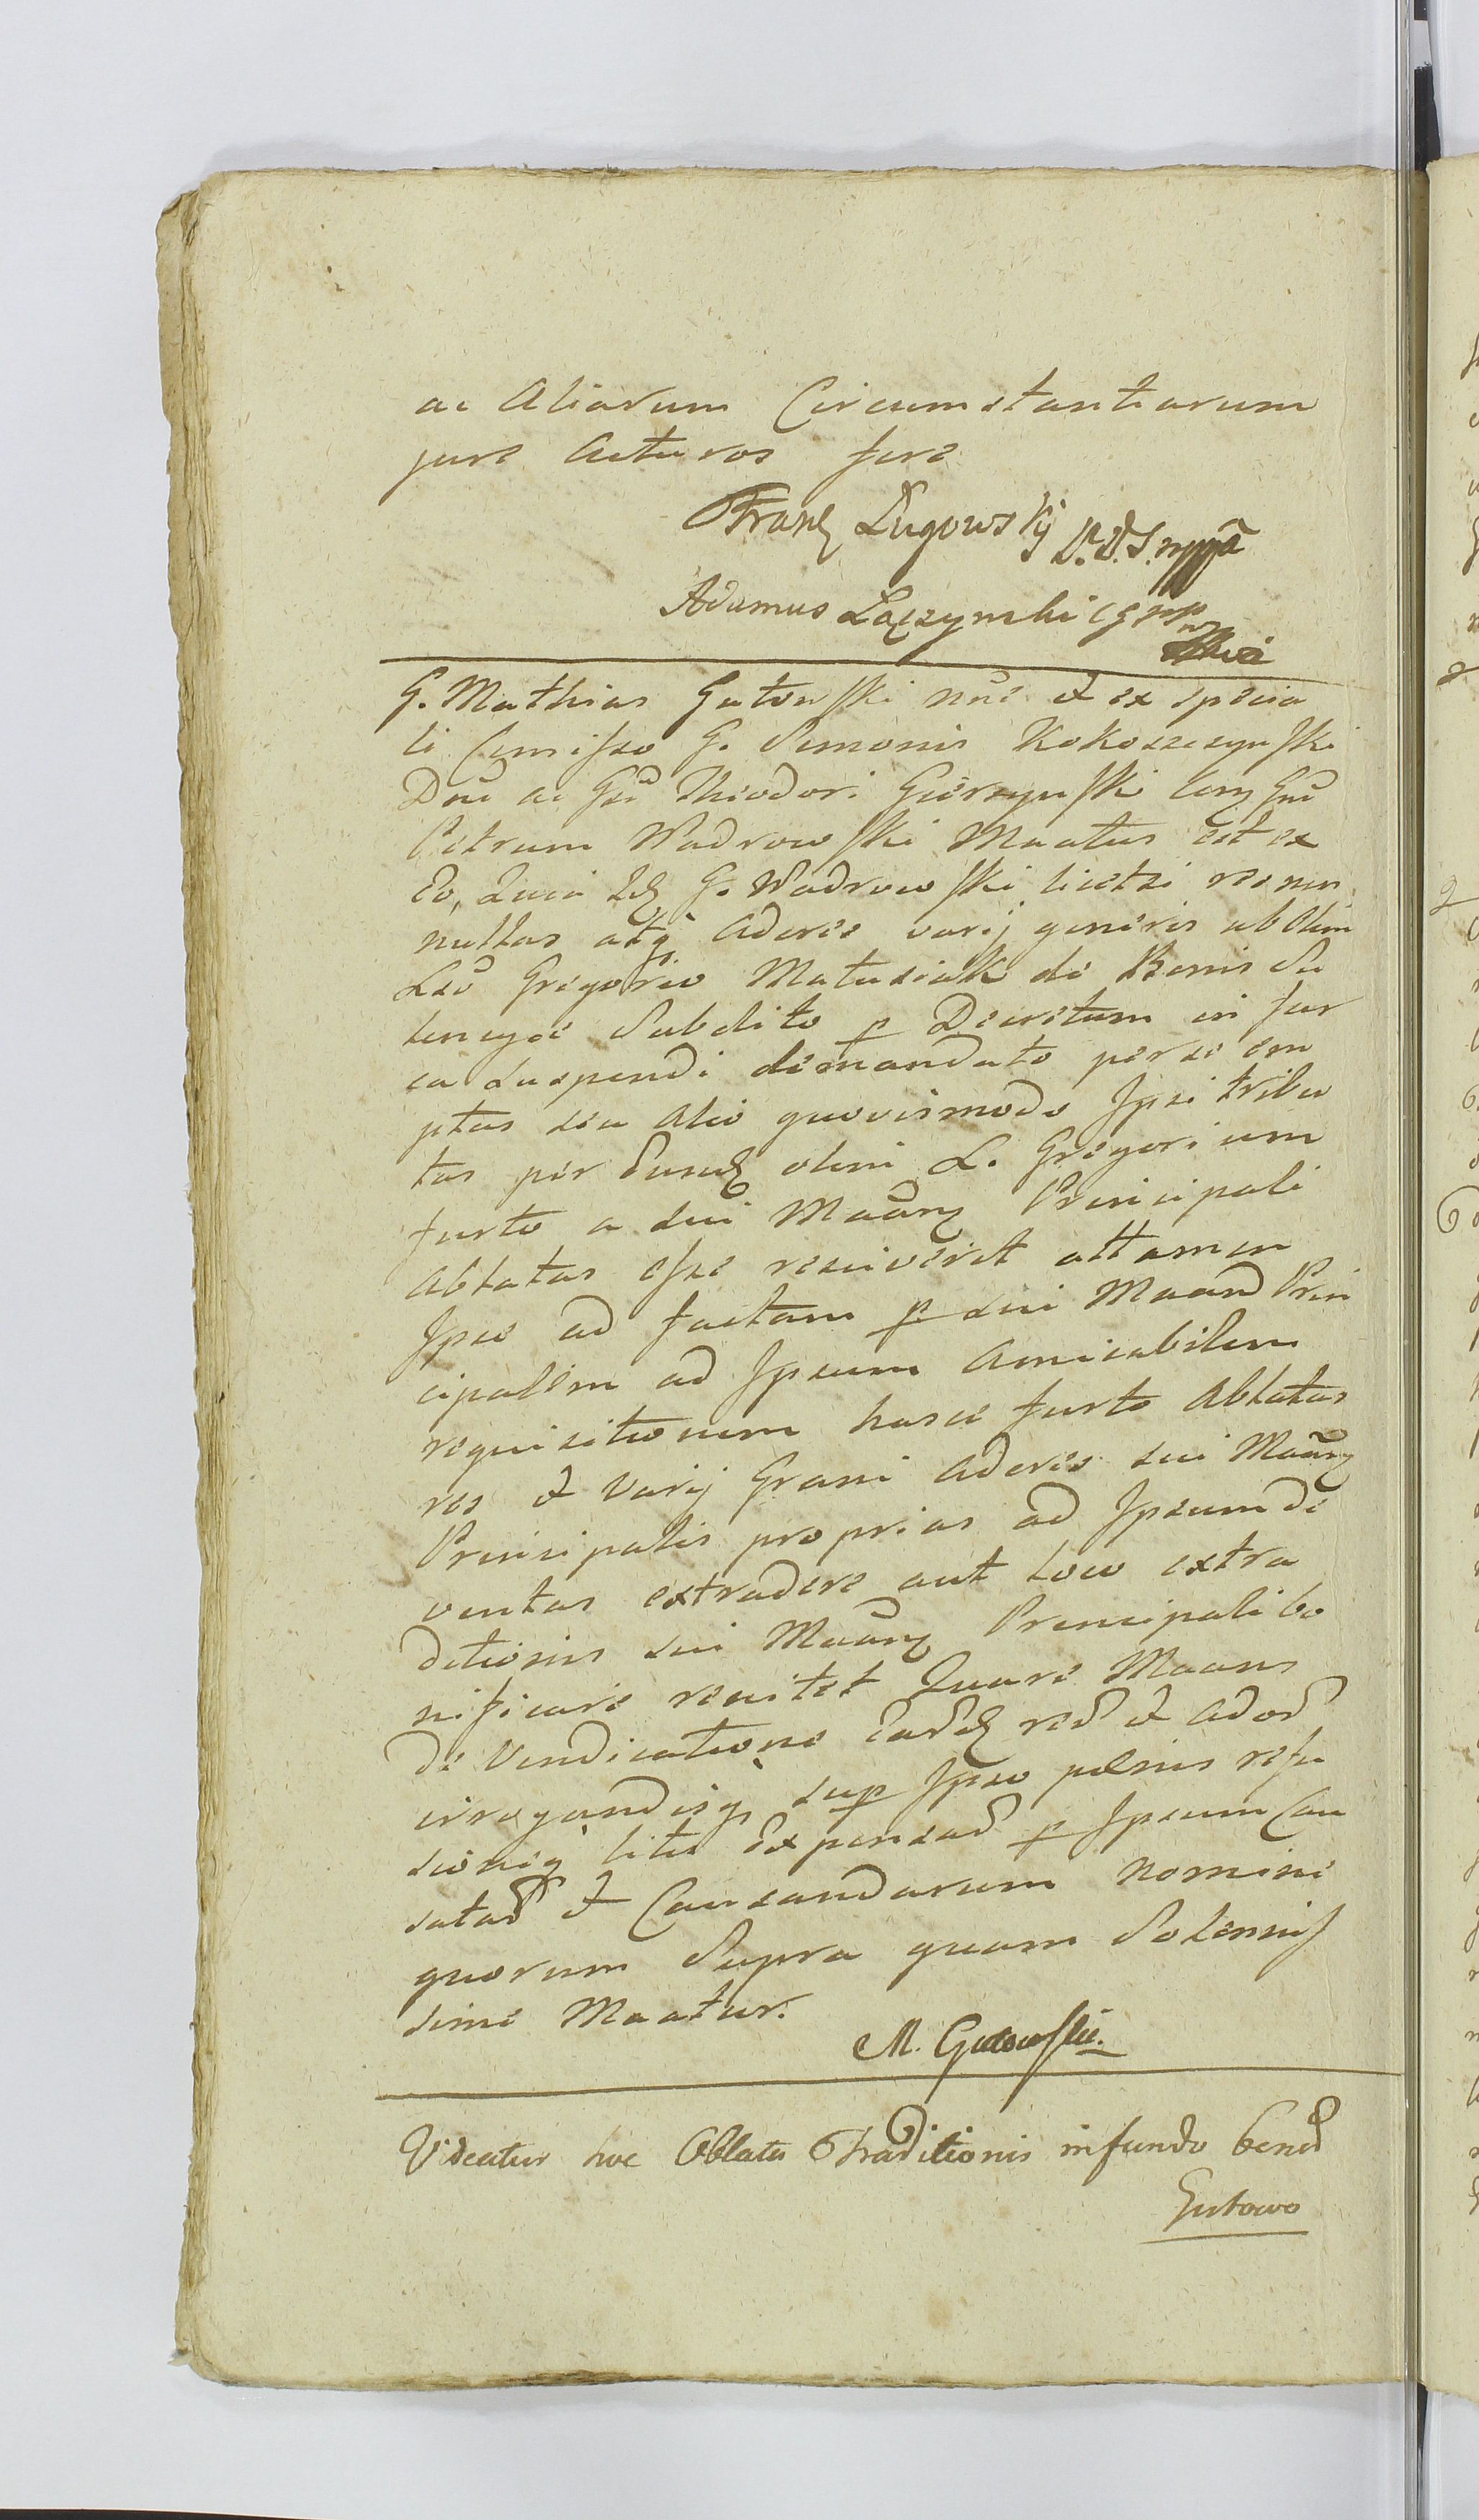 ac Aliarum Circumstantiarum
jure Acturos fore
Franꝫ Ługowskÿ
Adamus Łączynski
G. Mathias Gutowski nne et ex specia
li Comisso G. Simonis Kokoszczynski
Dni ac Gsi Theodori Gierzynski Conꝫ Gnu
Petrum Wadrowski Maatus est ex
Eo, Quia Idꝫ G. Wadrowski licet si res non
nullas atqꝫ Aderes varij generis ab olim
Lso Gregorio Matusiak de Bonis Su
lencyce Subdito p Decretum in fur
ca suspendi demandato per se em
ptas seu alio quovismodo Ipsi tribu
tas per Eundꝫ olim L. Gregorium
furto a sui Maanꝫ Principali
ablatas esse resciverit attamen
Ipse ad factam p sui Maand Prin
cipalem ad Ipsum Amicabilem
requisitionem hasce furto Ablatas
res et varij Grani Aderes sui Maanꝫ
Principalis proprias ad Ipsum de
ventas extradere aut loco extra
ditionis sui Maanꝫ Principali bo
nificare renitet Quare Maans
de Vendicatione eardꝫ red et Adod
irrogandisqꝫ sup Ipso pœnis refu
sioneqꝫ litis Expensad p Ipsum Cau
satad et Causandarum nomine
quorum Supra quam Solennis
sime Maatur.
M. Gutowski.
Videatur hoc Oblata Traditionis in fundo bonod
Gutowo